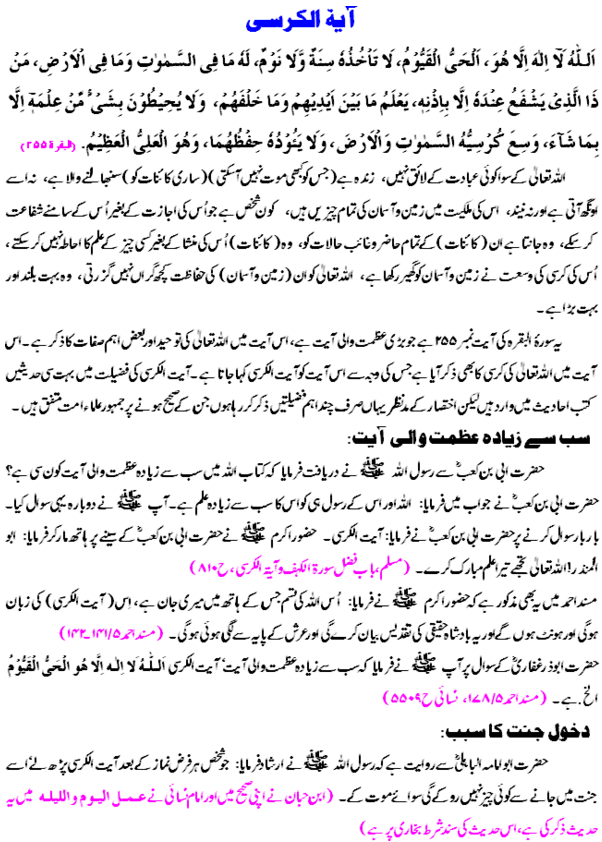 آیۃ الکرسی
اَللّٰهُ لَآ اِلٰهَ اِلَّا هُوَ، اَلْحَیُّ الْقَیُّوْمُ، لَا تَاْخُذُهٗ سِنَةٌ وَّلَا نَوْمٌ، لَهٗ مَا فِی السَّمٰوٰتِ وَمَا فِی الْاَرْضِ، مَنْ
ذَا الَّذِیْ یَشْفَعُ عِنْدَهٗ اِلَّا بِاِذْنِهٖ، یَعْلَمُ مَا بَیْنَ اَیْدِیْهِمْ وَمَا خَلْفَهُمْ، وَلَا یُحِیْطُوْنَ بِشَیْءٍ مِّنْ عِلْمِهٖٓ اِلَّا
بِمَا شَآءَ، وَسِعَ کُرْسِیُّهُ السَّمٰوٰتِ وَالْاَرْضَ، وَلَا یَئُوْدُهٗ حِفْظُهُمَا، وَهُوَ الْعَلِیُّ الْعَظِیْمُ. (البقرۃ ۲۵۵)
اللہ تعالیٰ کے سوا کوئی عبادت کے لائق نہیں، زندہ ہے (جس کو کبھی موت نہیں آسکتی) (ساری کائنات کو) سنبھالنے والا ہے، نہ اسے
اونگھ آتی ہے اور نہ نیند، اس کی ملکیت میں زمین و آسمان کی تمام چیزیں ہیں، کون شخص ہے جو اُس کی اجازت کے بغیر اُس کے سامنے شفاعت
کر سکے، وہ جانتا ہے ان (کائنات) کے تمام حاضر و غائب حالات کو، وہ (کائنات) اُس کی منشا کے بغیر کسی چیز کے علم کا احاطہ نہیں کر سکتے،
اُس کی کرسی کی وسعت نے زمین و آسمان کو گھیر رکھا ہے، اللہ تعالیٰ کو ان (زمین و آسمان) کی حفاظت کچھ گراں نہیں گزرتی، وہ بہت بلند اور
بہت بڑا ہے۔
یہ سورۂ البقرہ کی آیت نمبر ۲۵۵ ہے جو بڑی عظمت والی آیت ہے، اس آیت میں اللہ تعالیٰ کی توحید اور بعض اہم صفات کا ذکر ہے۔ اس
آیت میں اللہ تعالیٰ کی کرسی کا بھی ذکر آیا ہے جس کی وجہ سے اس آیت کو آیت الکرسی کہا جاتا ہے۔ آیت الکرسی کی فضیلت میں بہت سی حدیثیں
کتب احادیث میں وارد ہیں لیکن اختصار کے مدنظر یہاں صرف چند اہم فضیلتیں ذکر کر رہا ہوں جن کے صحیح ہونے پر جمہور علماء امت متفق ہیں۔
سب سے زیادہ عظمت والی آیت:
حضرت ابی بن کعبؓ سے رسول اللہ ﷺ نے دریافت فرمایا کہ کتاب اللہ میں سب سے زیادہ عظمت والی آیت کون سی ہے؟
حضرت ابی بن کعبؓ نے جواب میں فرمایا: اللہ اور اس کے رسول ہی کو اس کا سب سے زیادہ علم ہے۔ آپ ﷺ نے دوبارہ یہی سوال کیا۔
بار بار سوال کرنے پر حضرت ابی بن کعبؓ نے فرمایا: آیت الکرسی۔ حضور اکرم ﷺ نے حضرت ابی بن کعبؓ کے سینے پر ہاتھ مار کر فرمایا: ابو
المنذر! اللہ تعالیٰ تجھے تیرا علم مبارک کرے۔ (مسلم، باب فضل سورۃ الکہف و آیۃ الکرسی، ح ۸۱۰)
مسند احمد میں یہ بھی مذکور ہے کہ حضور اکرم ﷺ نے فرمایا: اُس اللہ کی قسم جس کے ہاتھ میں میری جان ہے، اِس (آیت الکرسی) کی زبان
ہوگی اور ہونٹ ہوں گے اور یہ بادشاہ حقیقی کی تقدیس بیان کرے گی اور عرش کے پایہ سے لگی ہوئی ہوگی۔ (مسند احمد ۵/۱۴۱-۱۴۲)
حضرت ابوذر غفاریؓ کے سوال پر آپ ﷺ نے فرمایا کہ سب سے زیادہ عظمت والی آیت، آیت الکرسی اَللّٰهُ لَا اِلٰهَ اِلَّا هُوَ الْحَیُّ الْقَیُّوْمُ
الخ ہے۔ (مسند احمد ۵/۱۷۸، نسائی ح ۵۵۰۹)
دخول جنت کا سبب:
حضرت ابوامامہ الباہلیؓ سے روایت ہے کہ رسول اللہ ﷺ نے ارشاد فرمایا: جو شخص ہر فرض نماز کے بعد آیت الکرسی پڑھ لے اُسے
جنت میں جانے سے کوئی چیز نہیں روکے گی سوائے موت کے۔ (ابن حبان نے اپنی صحیح میں اور امام نسائی نے عمل الیوم واللیلہ میں یہ
حدیث ذکر کی ہے، اس حدیث کی سند شرط بخاری پر ہے)